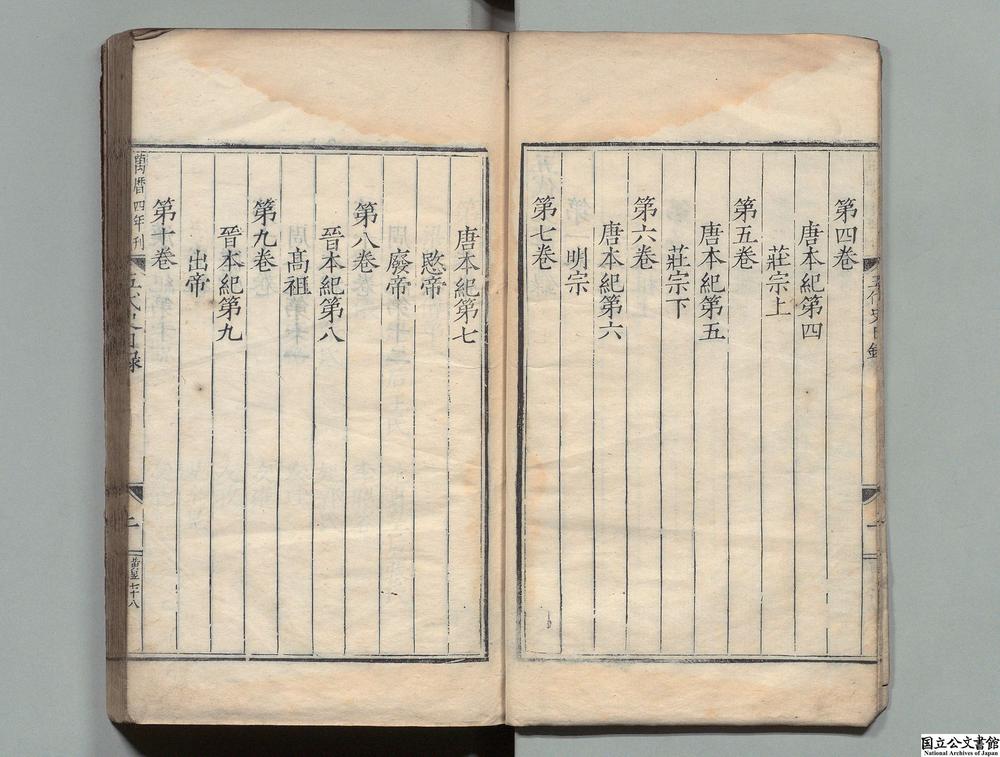 第四卷
唐本紀第四
莊宗上
第五卷
唐本紀第五
莊宗下
第六卷
唐本紀第六
明宗
第七卷
唐本紀第七
愍帝
廢帝
第八卷
晉本紀第八
髙祖
第九卷
晉本紀第九
出帝
第十卷
萬曆四年刊
五代史目録
二
七十八
国立公文書館
National Archives of Japan